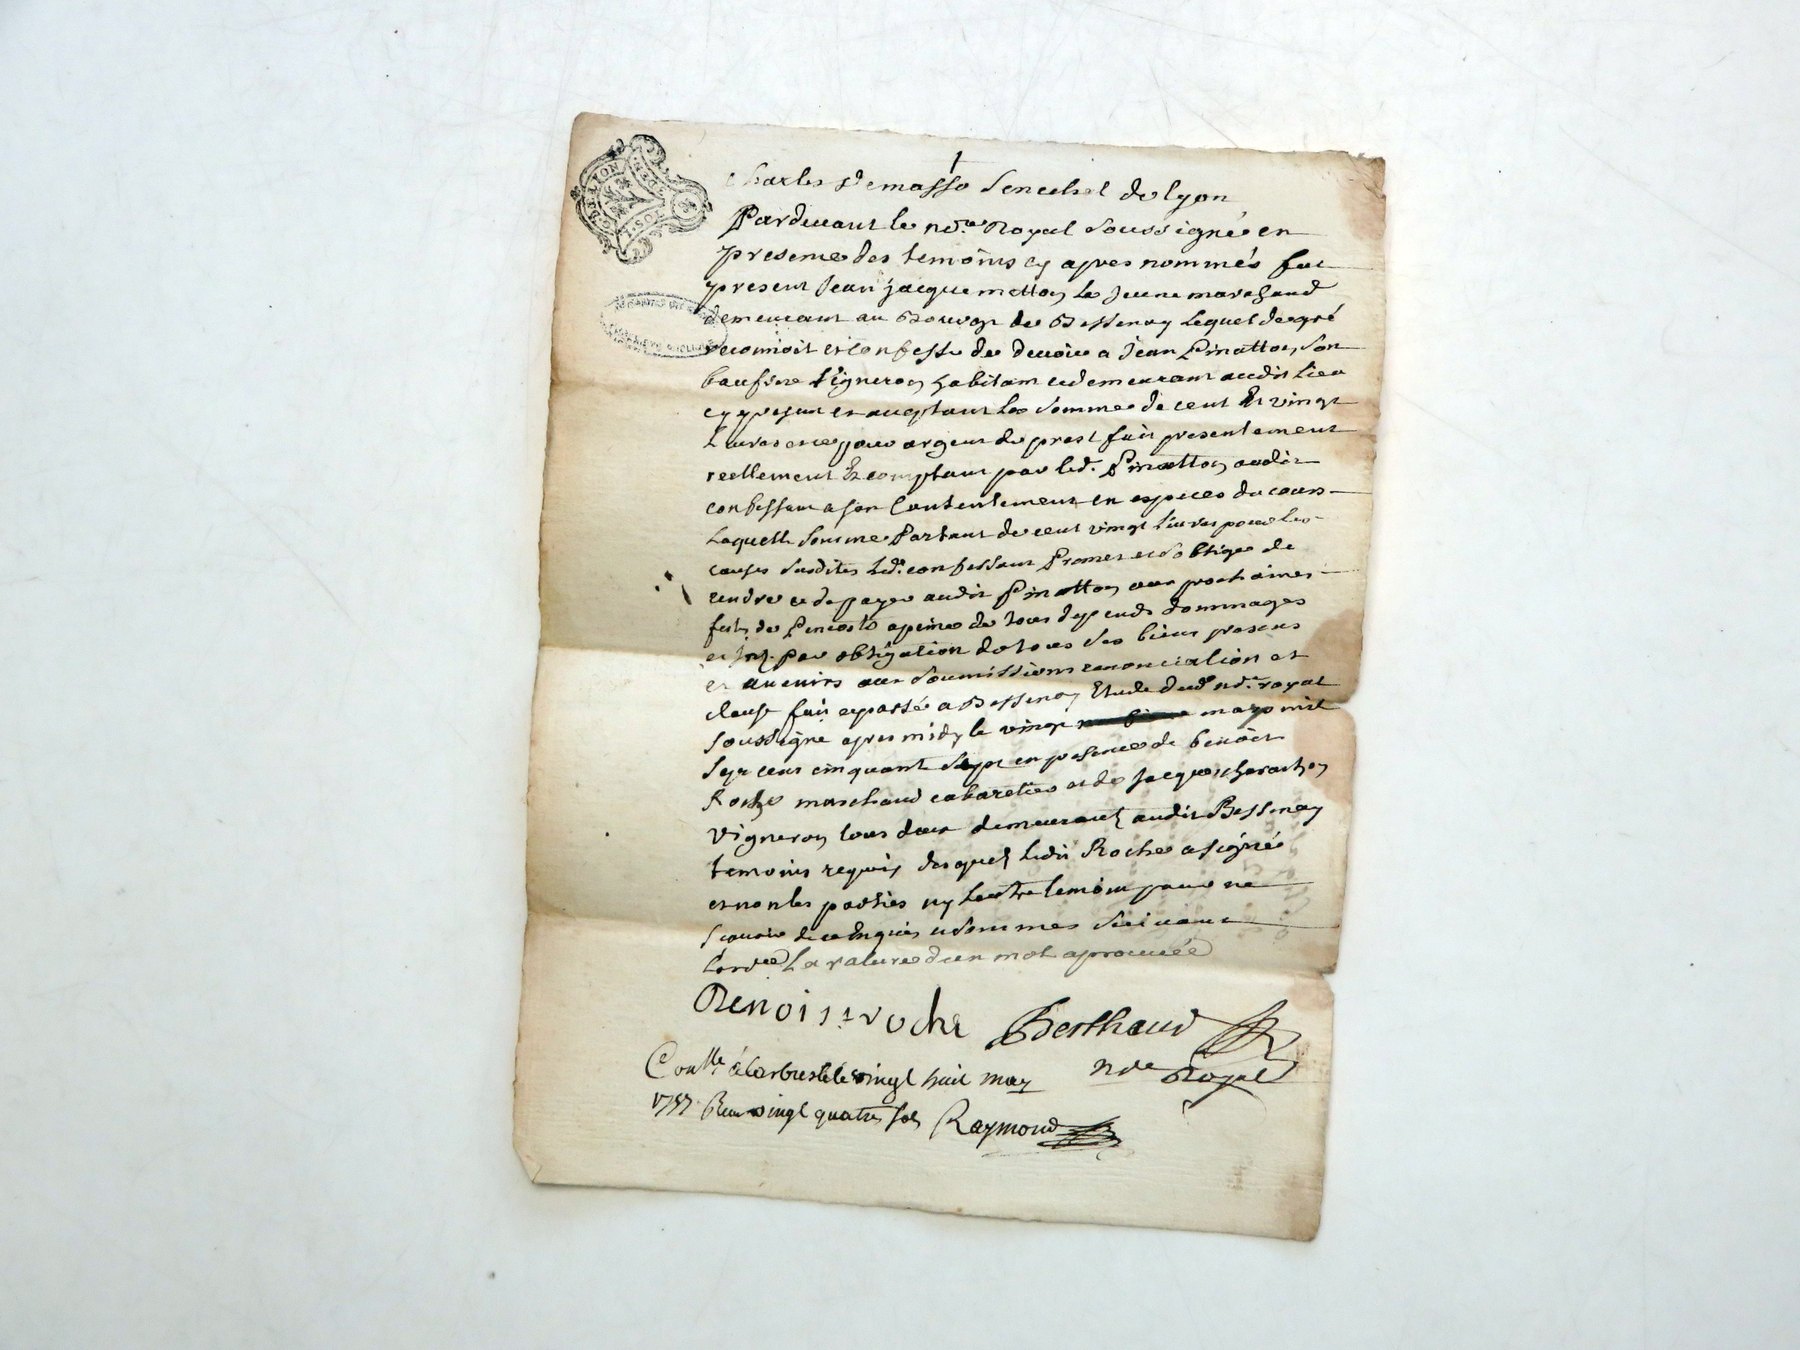 Charles Demasso Senechal de lyon
Pardevant le nore. Royal soussigné en
presence des temoins cy apres nommés fut
present Jean jacquemetton le jeune marchand
demeurant au Bourg de Bessenay lequel de gré
reconnoit et confesse de devoir a Jean Pinatton, son
baufrere Vigneron habitant et demeurant audit lieu
cy present et aceptant la somme de cent Et vingt
Livres et ce pour argent de prest fait presentement
reellement Et comptant par led. Pinatton audit
confessant a son Contentement en especes du cours
Laquelle somme Partant de cent vingt livres pour les
causes susdites led. confessant Promet et s'oblige de
rendre et de payer audit Pinatton aux prochaines
festes de Pencoste a peine de tous depends dommages
et int. par obligation de tous ses biens presens
et avenirs aux soumissions renonciation et
clause fait et passé a Bessenay Etude dud. nore. royal
soussigné apres midy le vingt may mil
sept cent cinquante sept en presence de benoist
Roche marchand cabaretier et de Jacque
Vigneron tous deux demeurant audit Bessenay
temoins requis desquels ledit Roche a signé
et non les parties ny l'autre temoin pour ne
scavoir de ce Enquis et sommés suivant
l'ordce La rature d'un mot aprouvée
Benoist roche Berthaud
nore Royal
Conllé à Larbresle le vingt huit may
1757 Reçu vingt quatre sols Raymond